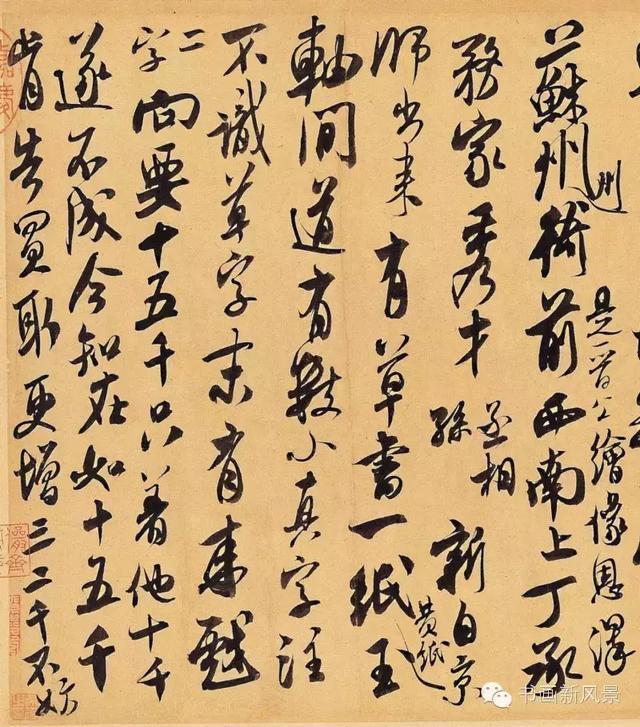 蘇州州衙前西南上丁承
是晋公繪像恩澤
務家秀才
丞相
孫
新自京
師出来有草書一紙
黄紙
王
軸間道有數小真字注
不識草字末有来戲
二字向要十五千只着他十千
遂不成今知在如十五千
肯告買取更增三二千不妨
书画新风景